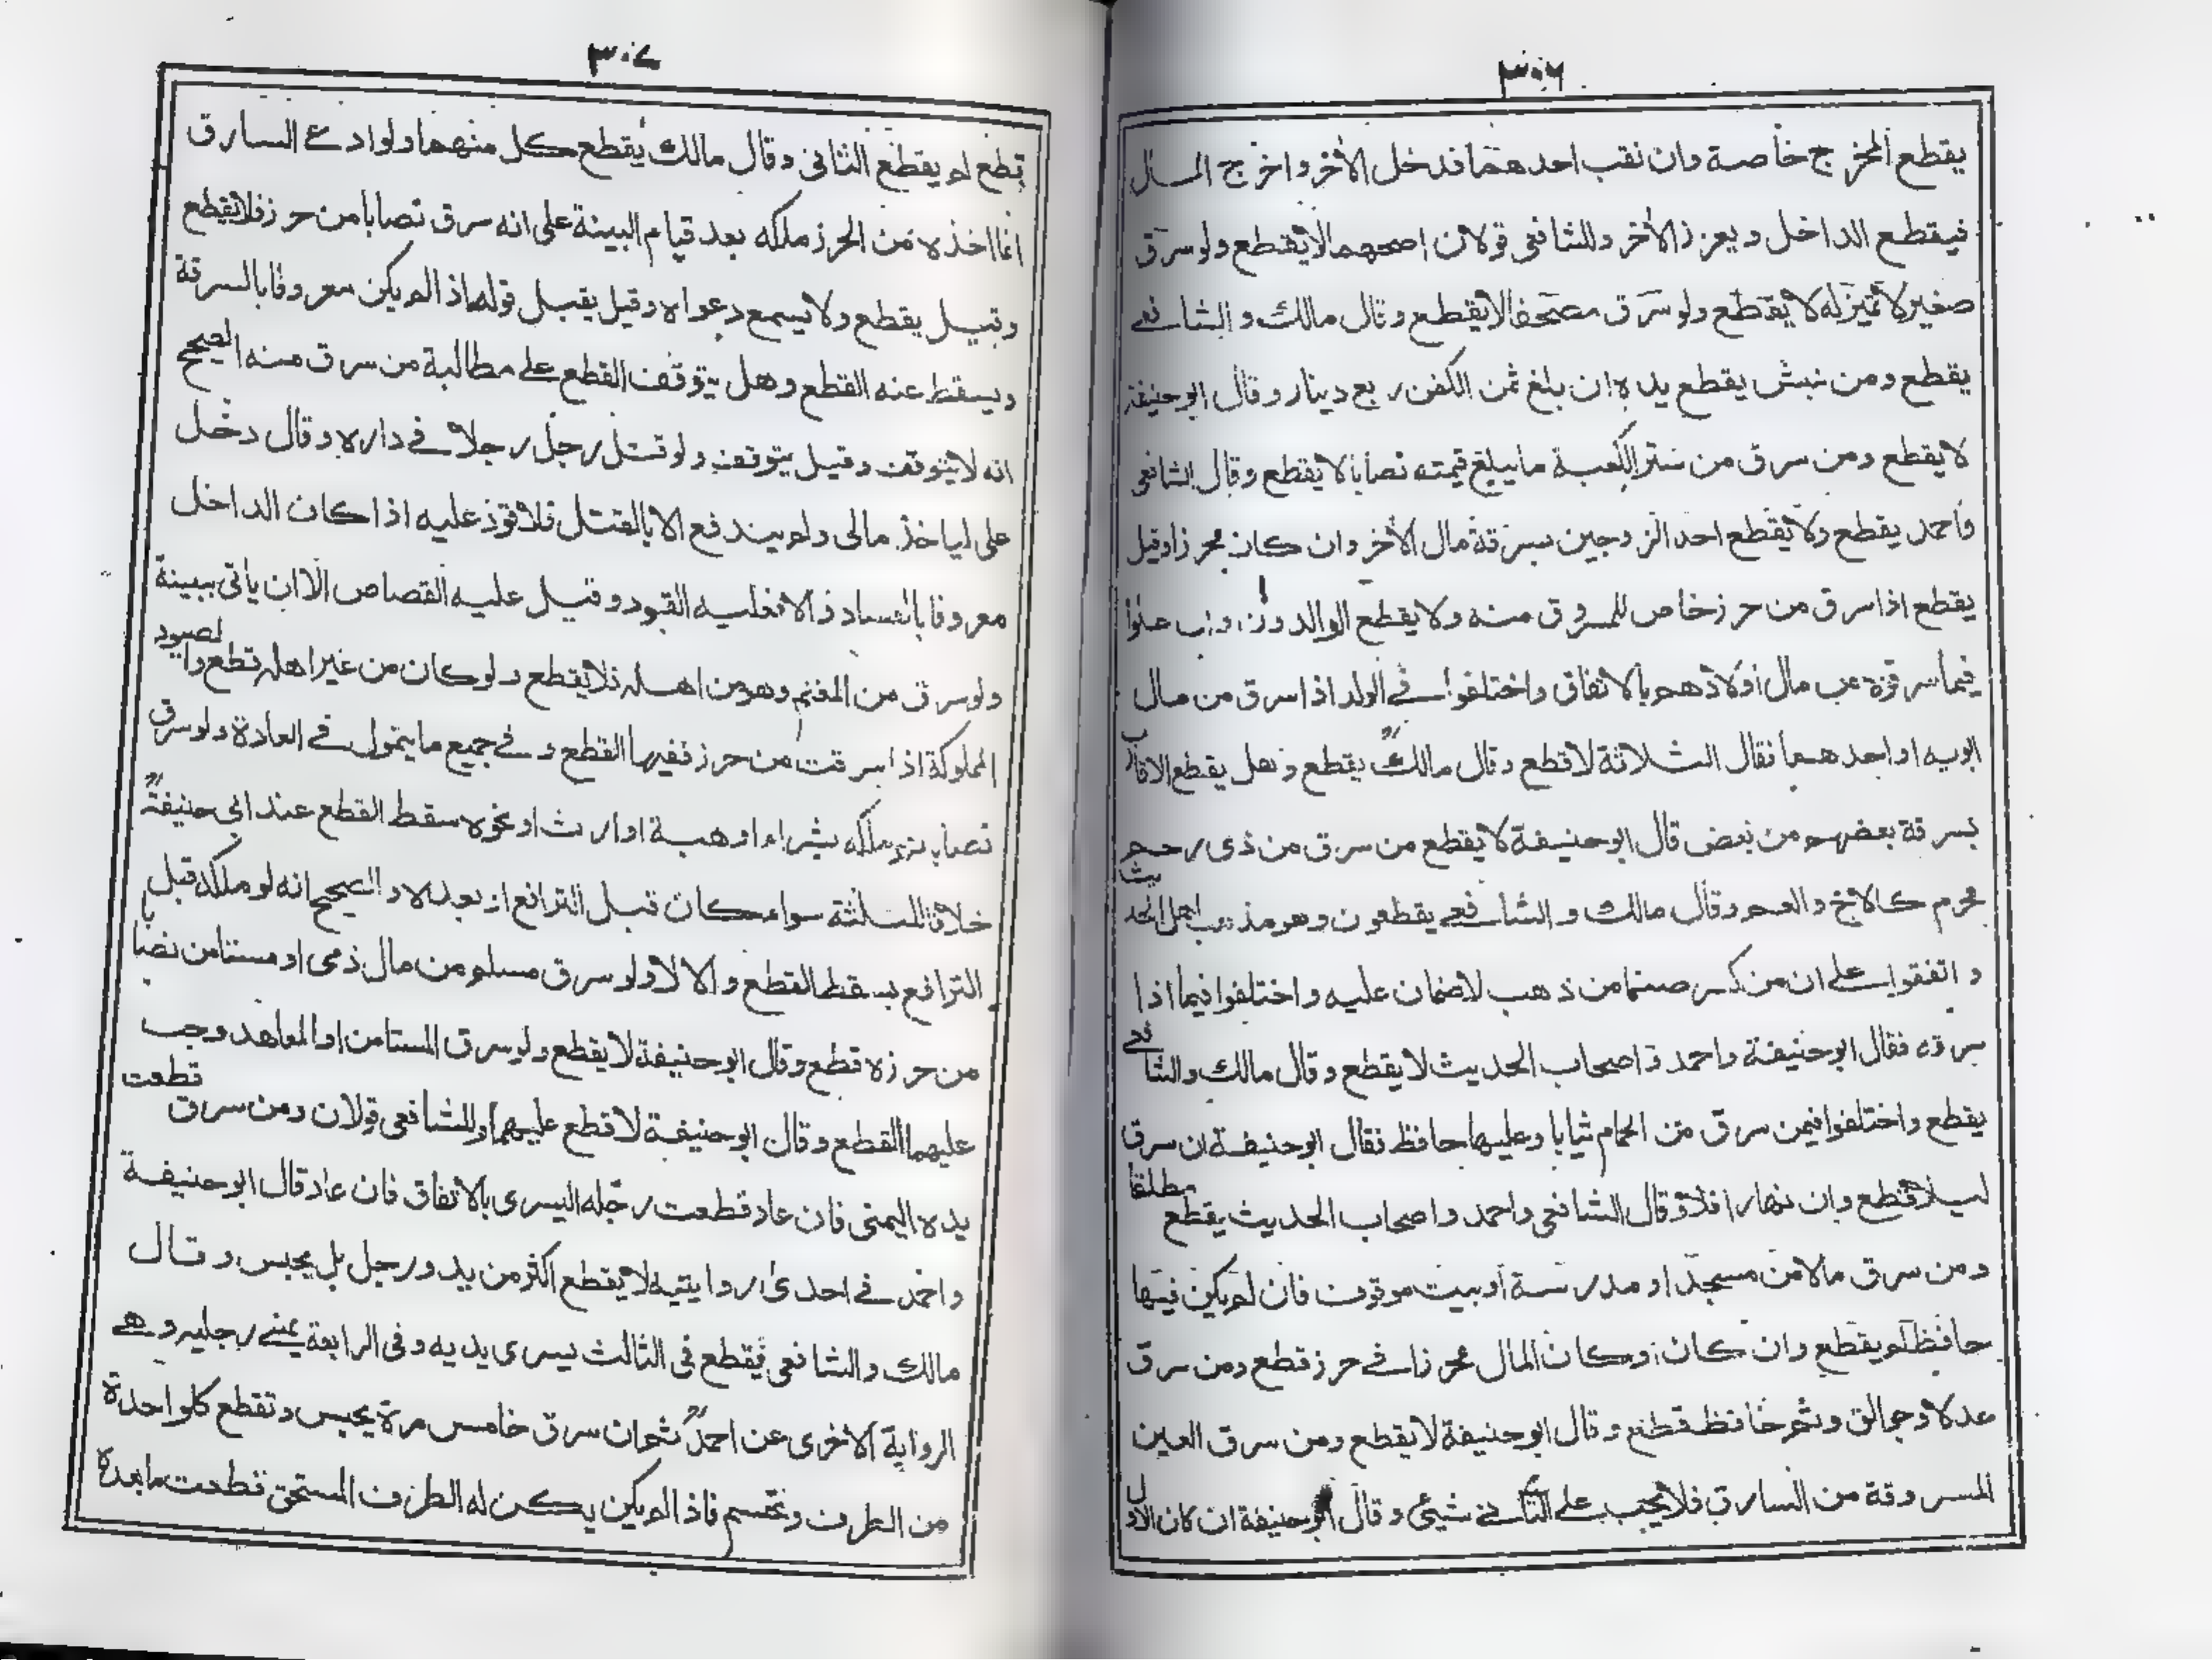 ٣٠٦
يقطع المخرج خاصة وان نقب احدهما فدخل الأخر واخرج المال
فيقطع الداخل ويعزر الأخر وللشافعي قولان اصحهما لا يقطع ولو سرق
صغيرا لا تميز له لا يقطع ولو سرق مصحفا لا يقطع وقال مالك والشافعے
يقطع ومن نبش يقطع يده ان بلغ ثمن الكفن ربع دينار وقال ابو حنيفة
لا يقطع ومن سرق من ستر الكعبة ما يبلغ قيمته نصابا لا يقطع وقال الشافعي
واحمد يقطع ولا يقطع احد الزوجين بسرقة مال الأخر وان كان محرزا وقيل
يقطع اذا سرق من حرز خاص للمسروق منه ولا يقطع الوالدون وان علوا
فيما سرقوه من مال اولادهم بالاتفاق واختلفوا فے الولد اذا سرق من مال
ابويه او احدهما فقال الثلاثة لا قطع وقال مالكؒ يقطع وهل يقطع الاقارب
بسرقة بعضهم من بعض قال ابو حنيفة لا يقطع من سرق من ذى رحم
محرم كالاخ والعم وقال مالك والشافعے يقطعون وهو مذهب اهل الحديث
واتفقوا علے ان من كسر صنما من ذهب لا ضمان عليه واختلفوا فيما اذا
سرقه فقال ابو حنيفة واحمد واصحاب الحديث لا يقطع وقال مالك والشافعے
يقطع واختلفوا فيمن سرق من الحمام ثيابا وعليها حافظ فقال ابو حنيفة ان سرق
ليلا قطع وان نهارا فلا وقال الشافعي واحمد واصحاب الحديث يقطع مطلقا
ومن سرق مالا من مسجد او مدرسة او بيت موقوف فان لم يكن فيها
حافظ لم يقطع وان كان وكان المال محرزا فے حرز قطع ومن سرق
عدلا وجوالق وثم حافظ قطع وقال ابو حنيفة لا يقطع ومن سرق العين
المسروقة من السارق فلا يجب على الثانے شيئ وقال ابو حنيفة ان كان الاول
٣٠٧
قطع لم يقطع الثانى وقال مالك يقطع كل منهما ولو ادعے السارق
انما اخذه من الحرز ملكه بعد قيام البينة على انه سرق نصابا من حرز فلا يقطع
وقيل يقطع ولا يسمع دعواه وقيل يقبل قوله اذا لم يكن معروفا بالسرقة
ويسقط عنه القطع وهل يتوقف القطع علے مطالبة من سرق منه الصحيح
انه لا يتوقف وقيل يتوقف ولو قتل رجل رجلا فے داره وقال دخل
على لياخذ مالى ولم يندفع الا بالقتل فلا قود عليه اذا كان الداخل
معروفا بالفساد والا فعليه القود وقيل عليه القصاص الا ان ياتى ببينة
ولو سرق من المغنم وهو من اهله فلا يقطع ولو كان من غير اهله قطع والصيود
المملوكة اذا سرقت من حرز ففيها القطع وفے جميع ما يتمول فے العادة ولو سرق
نصابا ثم ملكه بشراء او هبة او ارث او نحوه سقط القطع عند ابى حنيفةؒ
خلافا للثلثة سواء كان قبل الترافع او بعده والصحيح انه لو ملكه قبل
الترافع يسقط القطع والا لا ولو سرق مسلم من مال ذمى او مستامن نصابا
من حرزه قطع وقال ابو حنيفة لا يقطع ولو سرق المستامن او المعاهد وجب
عليهما القطع وقال ابو حنيفة لا قطع عليهما وللشافعى قولان ومن سرق قطعت
يده اليمنى فان عاد قطعت رجله اليسرى بالاتفاق فان عاد قال ابو حنيفة
واحمد فے احدى روايتيه لا يقطع اكثر من يد ورجل بل يحبس وقال
مالك والشافعى يقطع فى الثالث يسرى يديه وفى الرابعة يمنے رجليه وهے
الرواية الاخرى عن احمدؒ ثم ان سرق خامس مرة يحبس وتقطع كلواحدة
من الطرف وتحسم فاذا لم يكن يكن له الطرف المستحق قطعت مابعده